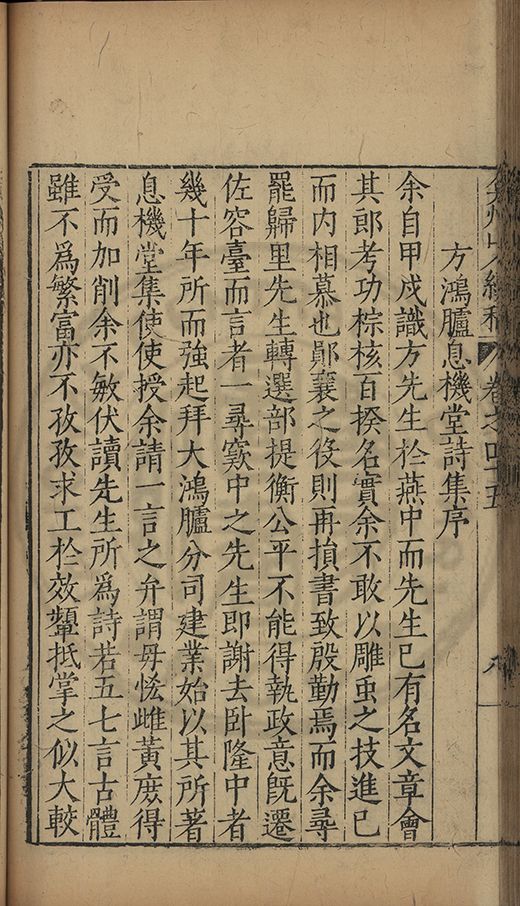 弇州山人續稿 卷之四十五 八
方鴻臚息機堂詩集序
余自甲戌識方先生於燕中而先生已有名文章會
其郎考功棕核百揆名實余不敢以雕虫之技進已
而内相慕也鄖襄之役則再損書致殷勤焉而余尋
罷歸里先生轉選部提衡公平不能得執政意旣遷
佐容臺而言者一尋窾中之先生即謝去卧隆中者
幾十年所而強起拜大鴻臚分司建業始以其所著
息機堂集使使授余請一言之弁謂毋恡雌黃庶得
受而加削余不敏伏讀先生所爲詩若五七言古體
雖不爲繁富亦不孜孜求工於效顰抵掌之似大較